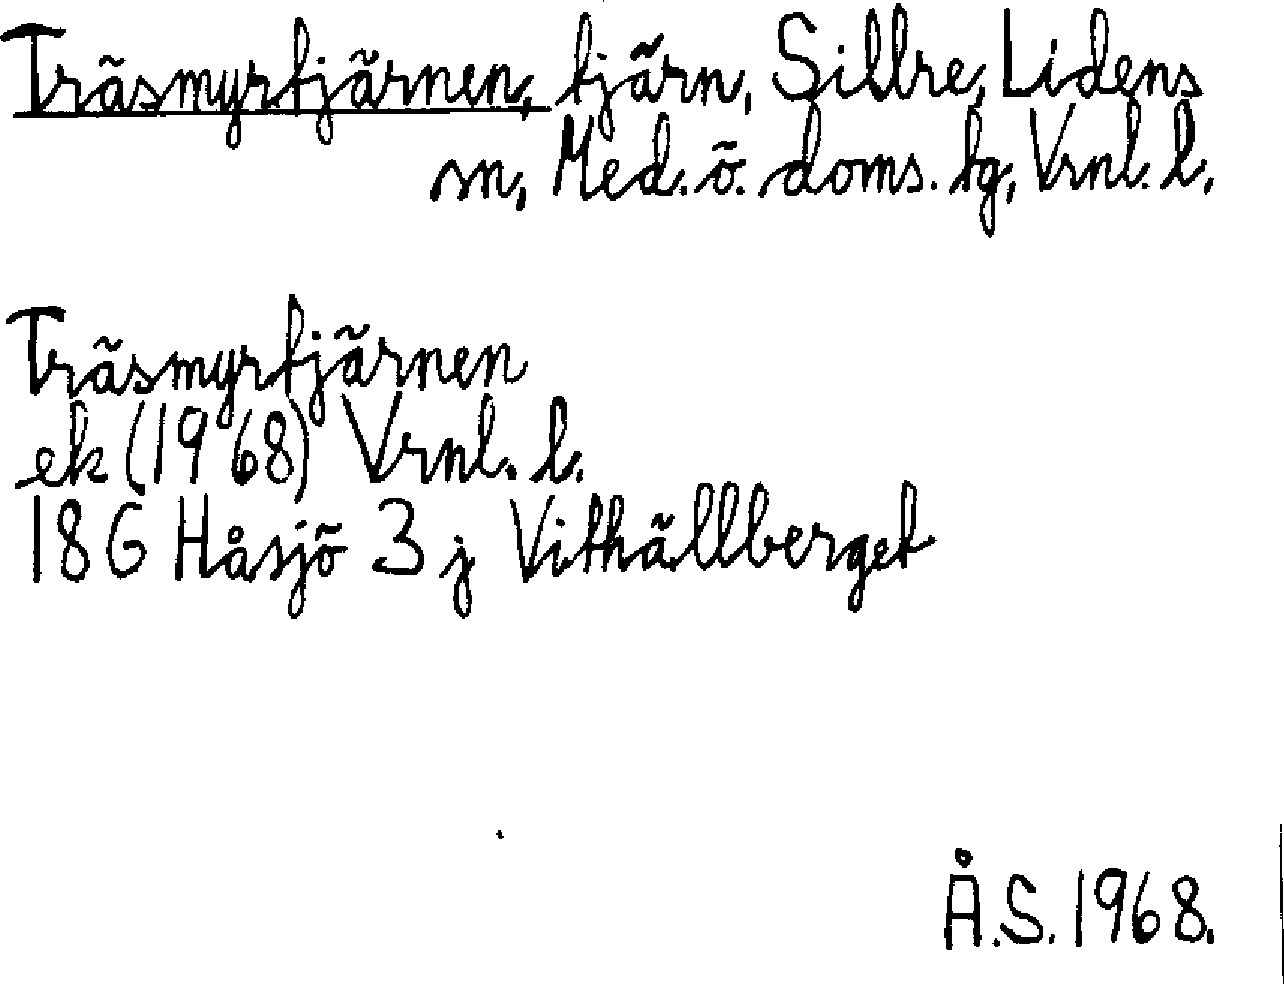 Träsmyrtjärnen, tjärn, Sillre, Lidens
sn, Med. ö. doms. tg, Vrnl. l.
Träsmyrtjärnen
ek (1968) Vrnl. l.
18G Håsjö 3 j Vithällberget
Å.S. 1968.